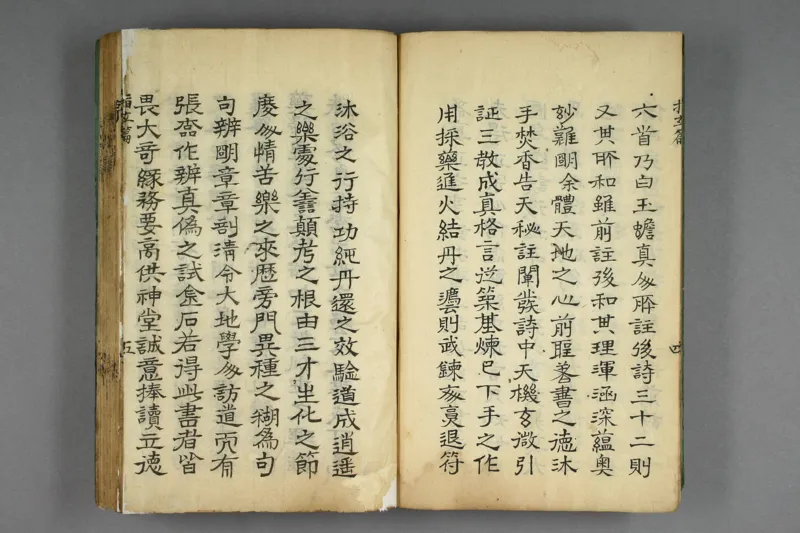 六首乃白玉蟾真人所註後詩三十二則
又其所和雖前註後和其理渾涵深蘊奧
妙難明余體天地之心前聖著書之德沐
手焚香告天秘註闡發詩中天機玄微引
証三教成真格言從築基煉己下手之作
用採藥進火結丹之鑪則武鍊文烹退符
沐浴之行持功純丹還之效驗道成逍遥
之樂處行善顛考之根由三才生化之節
度人情苦樂之來歷旁門異種之糊為句
句辨明章章剖清令大地學人訪道而有
張盃作辨真偽之試金石若得此書者皆
畏大哥緣務要高供神堂誠意捧讀立德
指玄篇
四
指玄篇
五